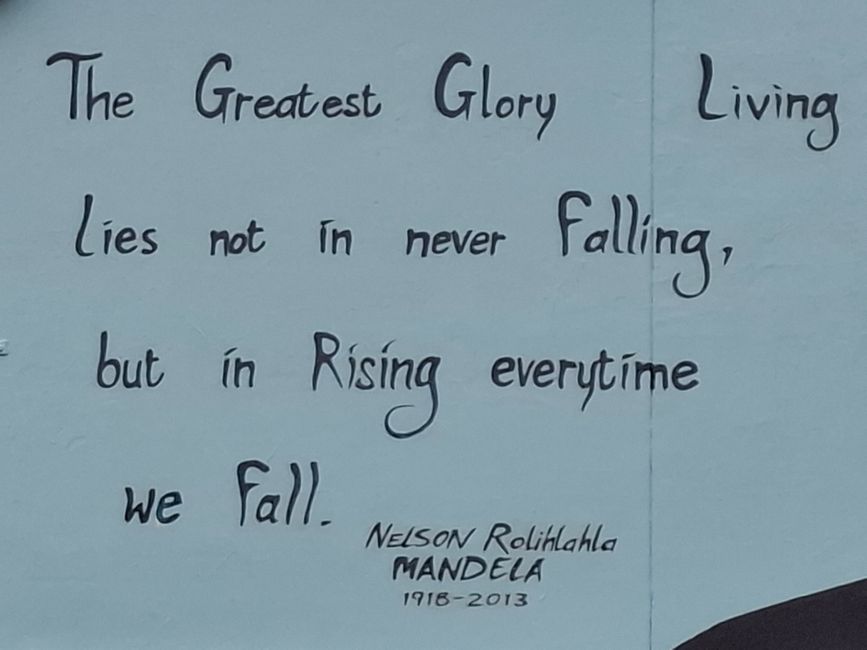 The Greatest Glory Living
lies not in never falling,
but in Rising everytime
we fall.
NELSON Rolihlahla
MANDELA
1918-2013